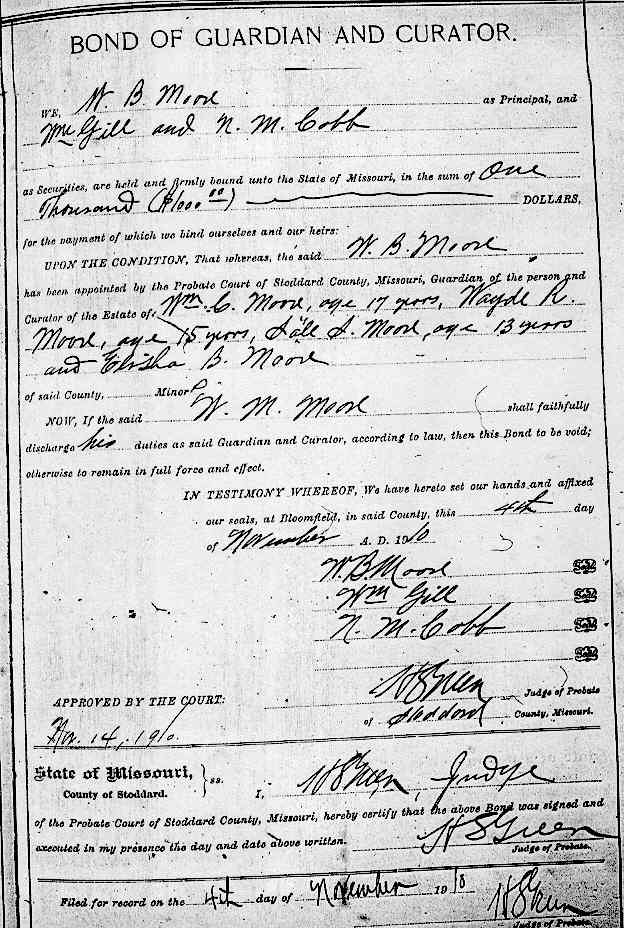 BOND OF GUARDIAN AND CURATOR.
WE, W. B. Moore as Principal, and
Wm Gill and N. M. Cobb
as Securities, are held and firmly bound unto the State of Missouri, in the sum of One
Thousand ($1000.00) DOLLARS,
for the payment of which we bind ourselves and our heirs:
UPON THE CONDITION, That whereas, the said W. B. Moore
has been appointed by the Probate Court of Stoddard County, Missouri, Guardian of the person and
Curator of the Estate of Wm. C. Moore, age 17 years, Wayde R.
Moore, age 15 years, I. Moore, age 13 years
and Elisha B. Moore
of said County, Minors
NOW, If the said W. M. Moore shall faithfully
discharge his duties as said Guardian and Curator, according to law, then this Bond to be void;
otherwise to remain in full force and effect.
IN TESTIMONY WHEREOF, We have hereto set our hands and affixed
our seals, at Bloomfield, in said County, this 4th day
of November A. D. 1910
W. B. Moore Seal
Wm Gill Seal
N. M. Cobb Seal
Seal
APPROVED BY THE COURT: HSGreen Judge of Probate
of Stoddard County, Missouri.
Nov. 14, 1910.
State of Missouri, } ss.
County of Stoddard. I, HSGreen, Judge
of the Probate Court of Stoddard County, Missouri, hereby certify that the above Bond was signed and
executed in my presence the day and date above written. HSGreen
Judge of Probate.
Filed for record on the 4th day of November 1910 HSGreen
Judge of Probate.